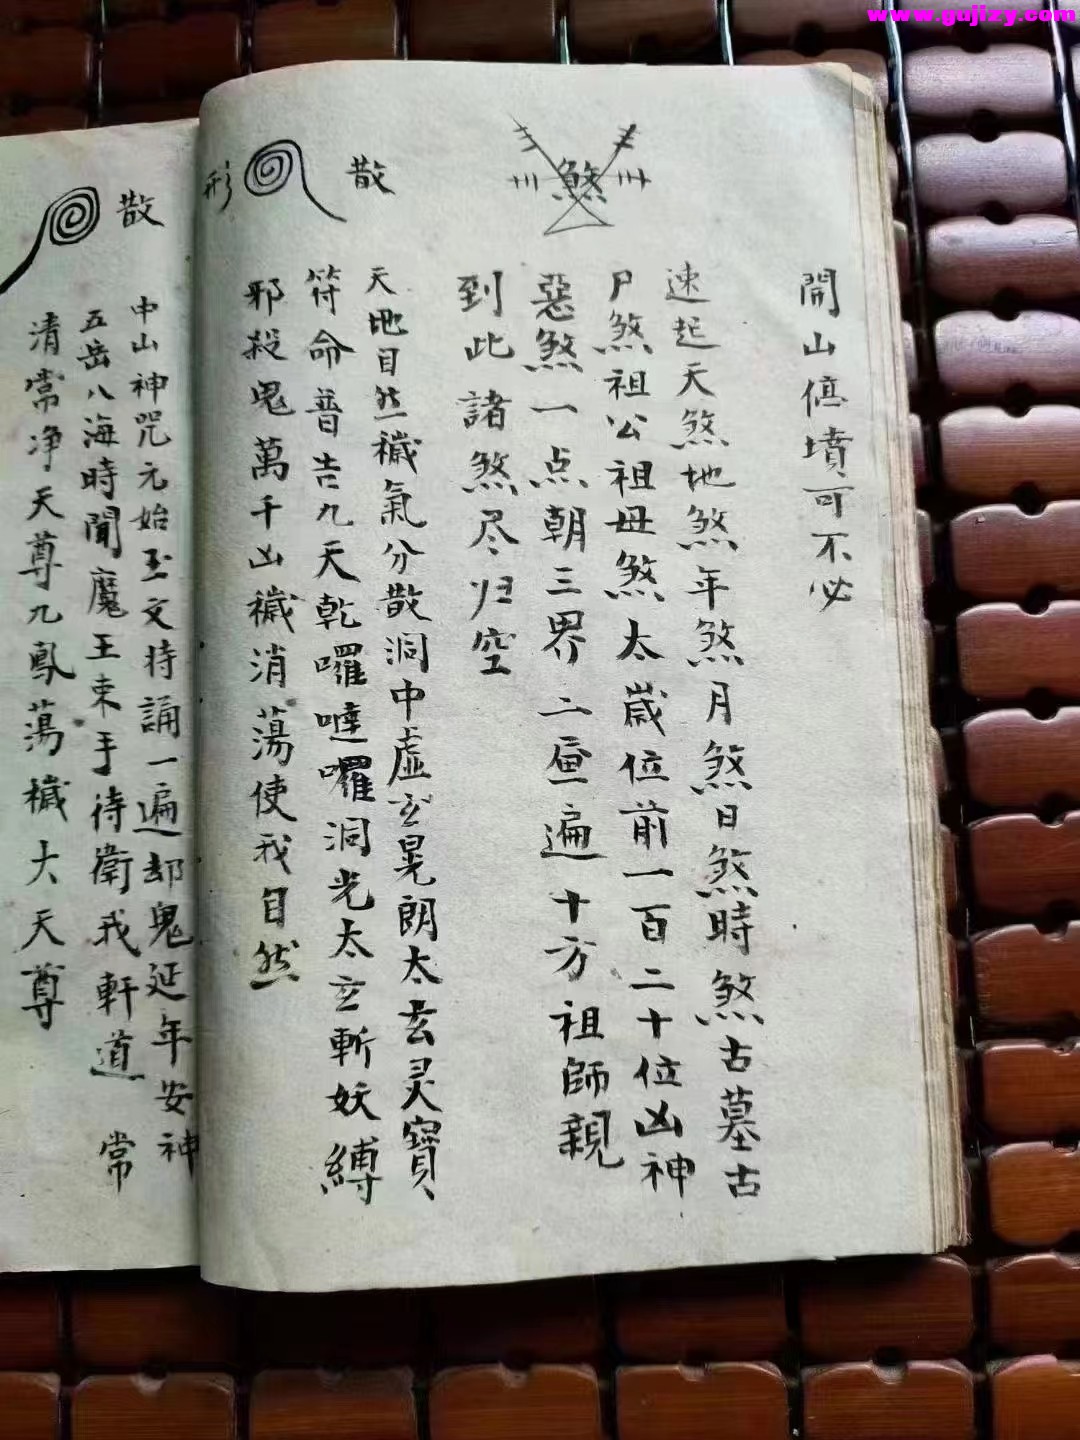 www.gujizy.com
開山俢墳可不必
煞
速起天煞地煞年煞月煞日煞時煞古墓古
尸煞祖公祖母煞太歲位前一百二十位凶神
惡煞一点朝三界二昼遍十方祖師親
到此諸煞尽归空
散
形
天地自然穢氣分散洞中虛玄晃朗太玄灵寶
符命普告九天乾囉噠囉洞光太玄斬妖縛
邪殺鬼萬千凶穢消蕩使我自然
散
中山神咒元始玉文持誦一遍却鬼延年安神
五岳八海時聞魔王束手待衛我軒道 常
清常净天尊九鳳蕩穢大天尊